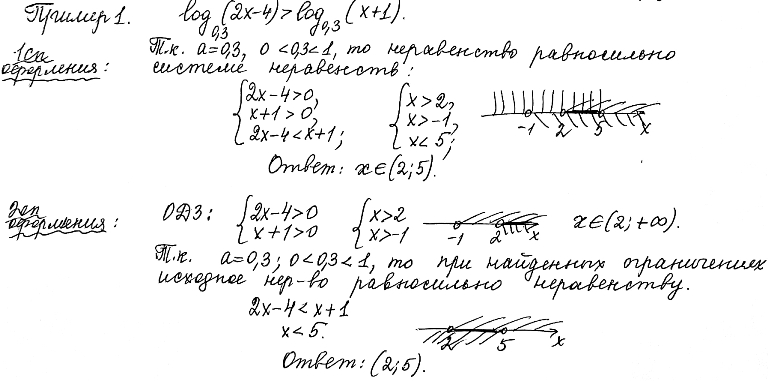 Пример 1. log₀,₃(2x-4)>log₀,₃(x+1).
1сп оформления: Т.к. a=0,3, 0<0,3<1, то неравенство равносильно
системе неравенств:
{2x-4>0, {x>2,
x+1>0, x>-1,
2x-4<x+1; x<5;
-1 2 5 x
Ответ: x∈(2;5).
2сп оформления: ОДЗ: {2x-4>0 {x>2 x∈(2;+∞).
x+1>0 x>-1 -1 2 x
Т.к. a=0,3; 0<0,3<1, то при найденных ограничениях
исходное нер-во равносильно неравенству.
2x-4<x+1
x<5. 2 5 x
Ответ: (2;5).